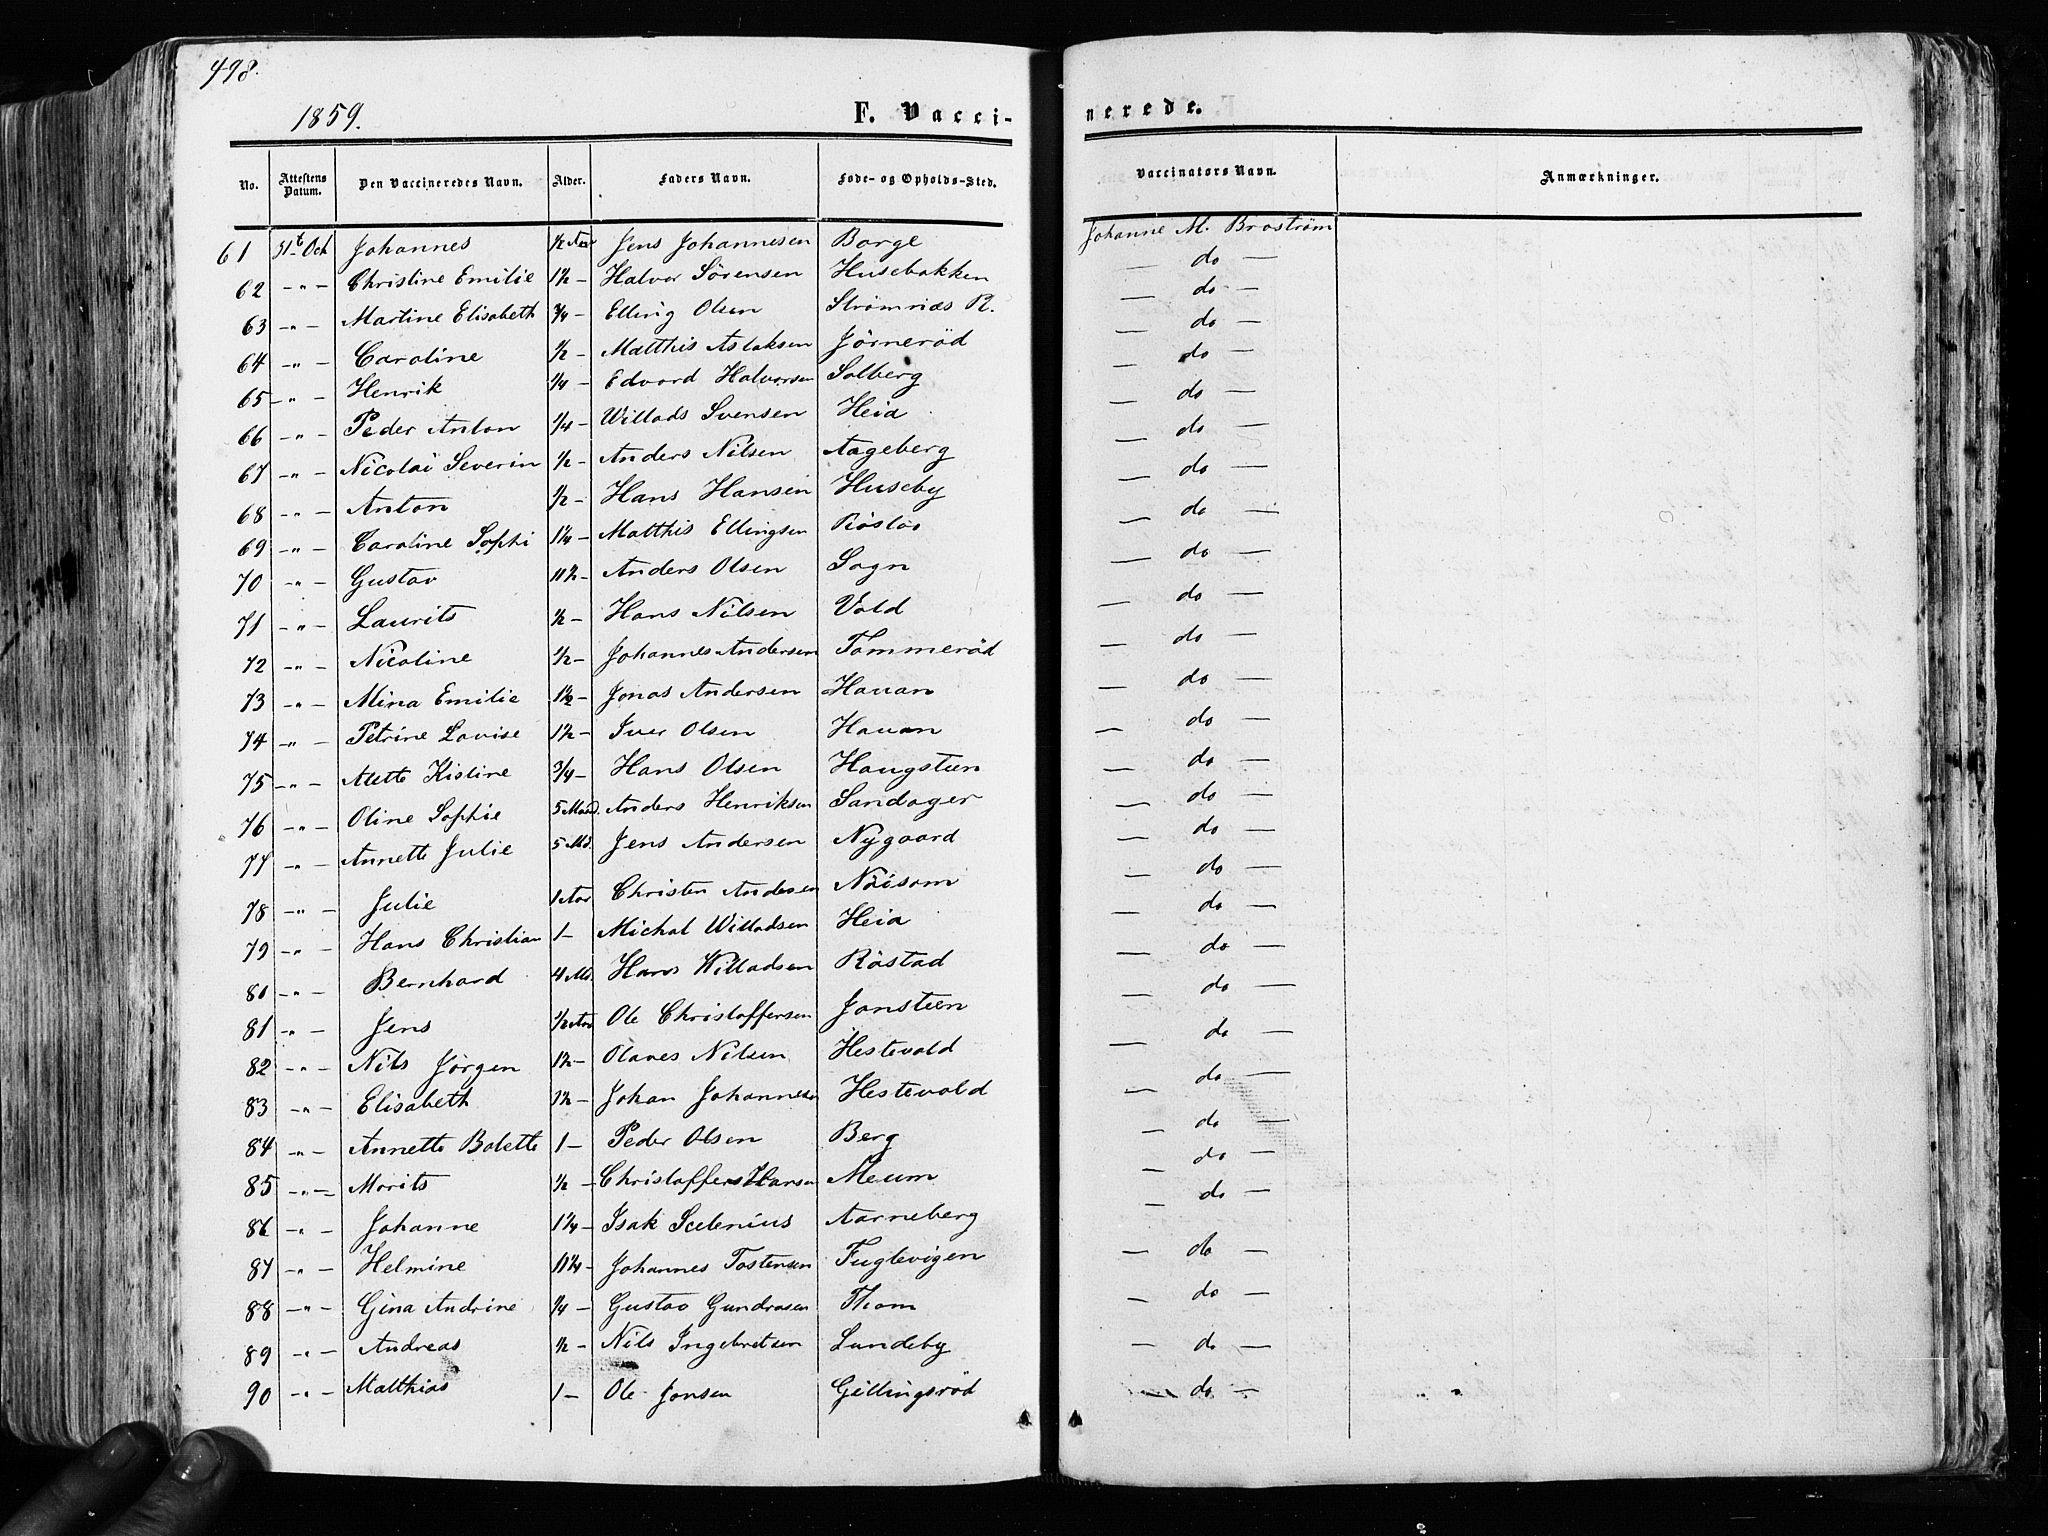 498.
1859. F. Vacci- nerede.
No. Attestens Datum. Den Vaccineredes Navn. Alder. Faders Navn. Føde- og Opholds-Sted. Vaccinators Navn. Anmærkninger.
61 31t Oct Johannes 1/2 Aar Jens Johannesen Borge Johanne M. Broström
62 -"- Christine Emilie 1 1/2 - Halvor Sörensen Husebakken — do —
63 -"- Martine Elisabeth 3/4 - Elling Olsen Strömnæs P. — do —
64 -"- Caroline 1/2 - Matthis Aslaksen Jörneröd — do —
65 -"- Henrik 1/4 - Edvard Halvorsen Solberg — do —
66 -"- Peder Anton 1/4 - Willads Svensen Heia — do —
67 -"- Nicolai Severin 1/2 - Anders Nilsen Aageberg — do —
68 -"- Anton 1/2 - Hans Hansen Huseby — do —
69 -"- Caroline Sophi 1 1/4 - Matthis Ellingsen — do —
70 -"- Gustav 11 1/2 - Anders Olsen Sogn — do —
71 -"- Laurits 1/2 - Hans Nilsen Vold — do —
72 -"- Nicoline 1/2 - Johannes Andersen Tommeröd — do —
73 -"- Mina Emilie 1 1/2 - Jonas Andersen Hauan — do —
74 -"- Petrine Lovise 1 1/2 - Iver Olsen Hauan — do —
75 -"- Alette Kistine 3/4 - Hans Olsen Haugsteen — do —
76 -"- Oline Sophie 5 Maad. Anders Henriksen Sandager — do —
77 -"- Annette Julie 5 Md. Jens Andersen Nygaard — do —
78 -"- Julie 1 Aar Christen Andersen Nöisom — do —
79 -"- Hans Christian 1 - Michal Willadsen Heia — do —
80 -"- Bernhard 4 Md. Hans Willadsen Röstad — do —
81 -"- Jens 1/2 Aar Ole Christoffersen Jonsteen — do —
82 -"- Nils Jörgen 1 1/2 - Olaves Nilsen Hestevold — do —
83 -"- Elisabeth 1 1/2 - Johan Johannesen Hestevold — do —
84 -"- Annette Bolette 1 - Peder Olsen Berg — do —
85 -"- Morits 1/2 - Christoffers Hansen Meum — do —
86 -"- Johanne 1 1/4 - Isak Selenius Aarneberg — do —
87 -"- Helmine 11 1/4 - Johannes Tostensen Fuglevigen — do —
88 -"- Gina Andrine 1/4 - Gustav Gundrosen Thom — do —
89 -"- Andreas 1/2 - Nils Ingebretsen Lundeby — do —
90 -"- Matthias 1 - Ole Jonsen Gillingsröd — do —